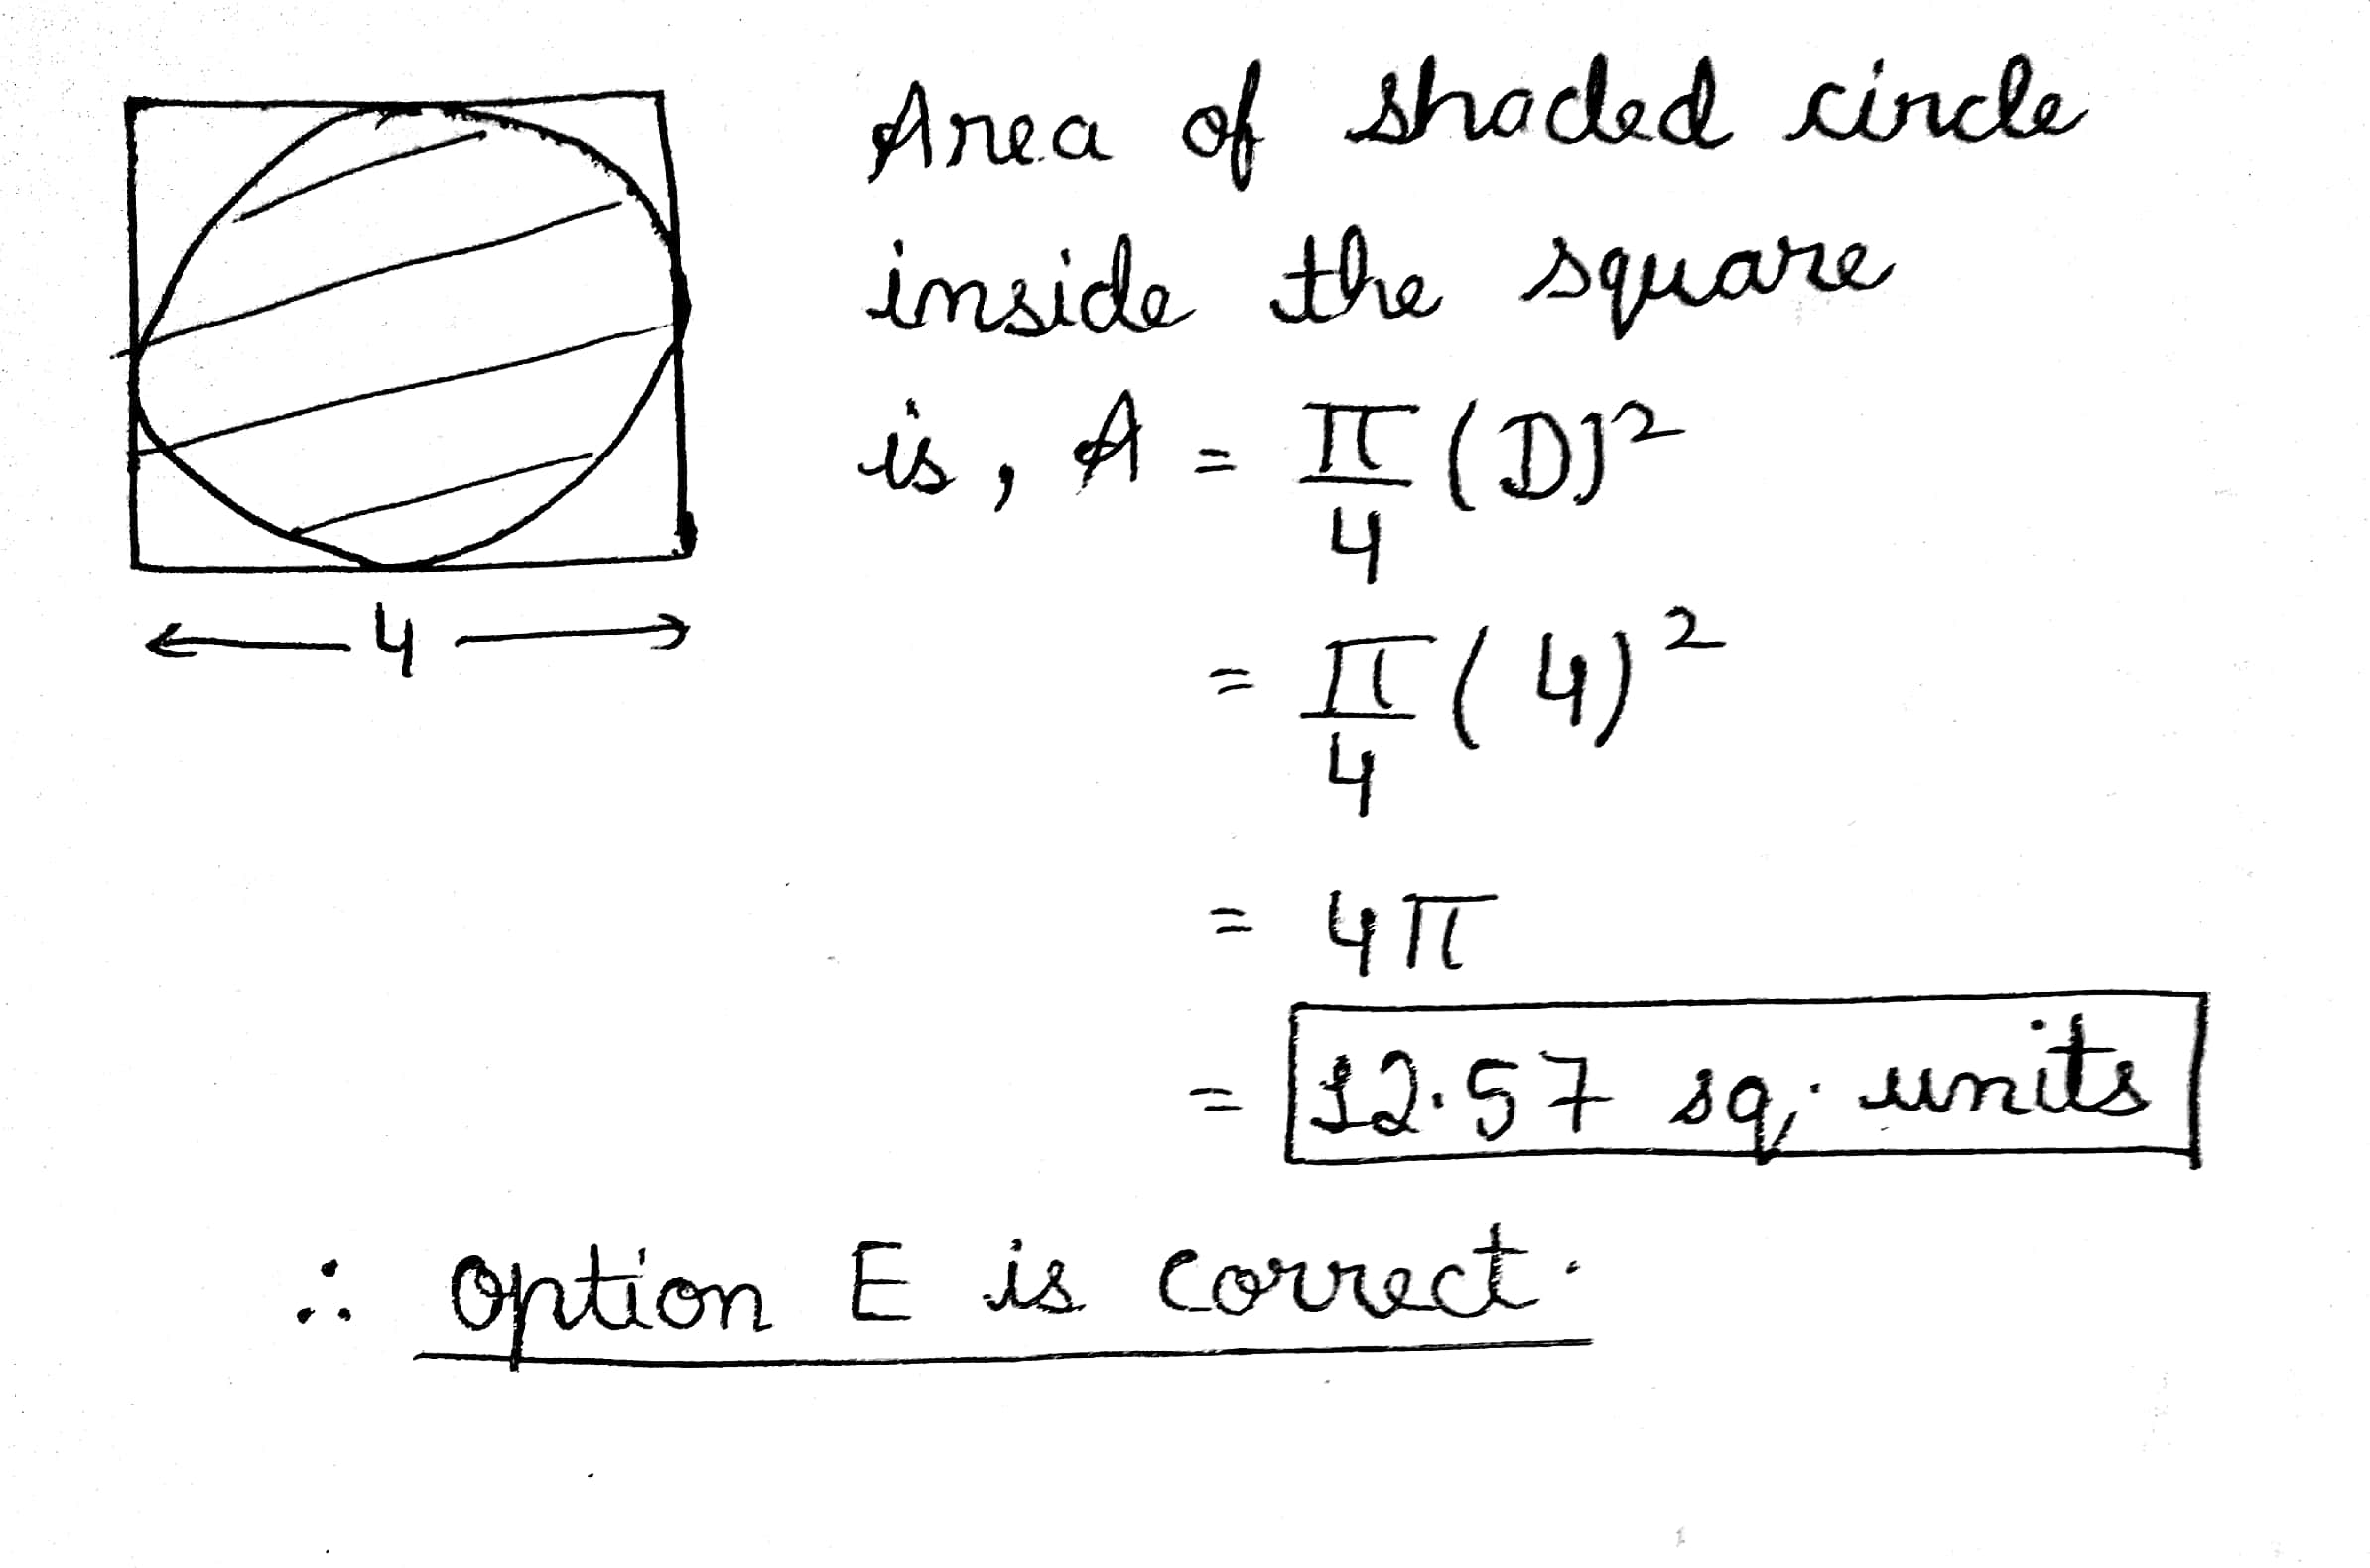 Area of shaded circle
inside the square
is, A = π/4 (D)²
4
= π/4 (4)²
= 4π
= 12.57 sq. units
∴ Option E is correct.